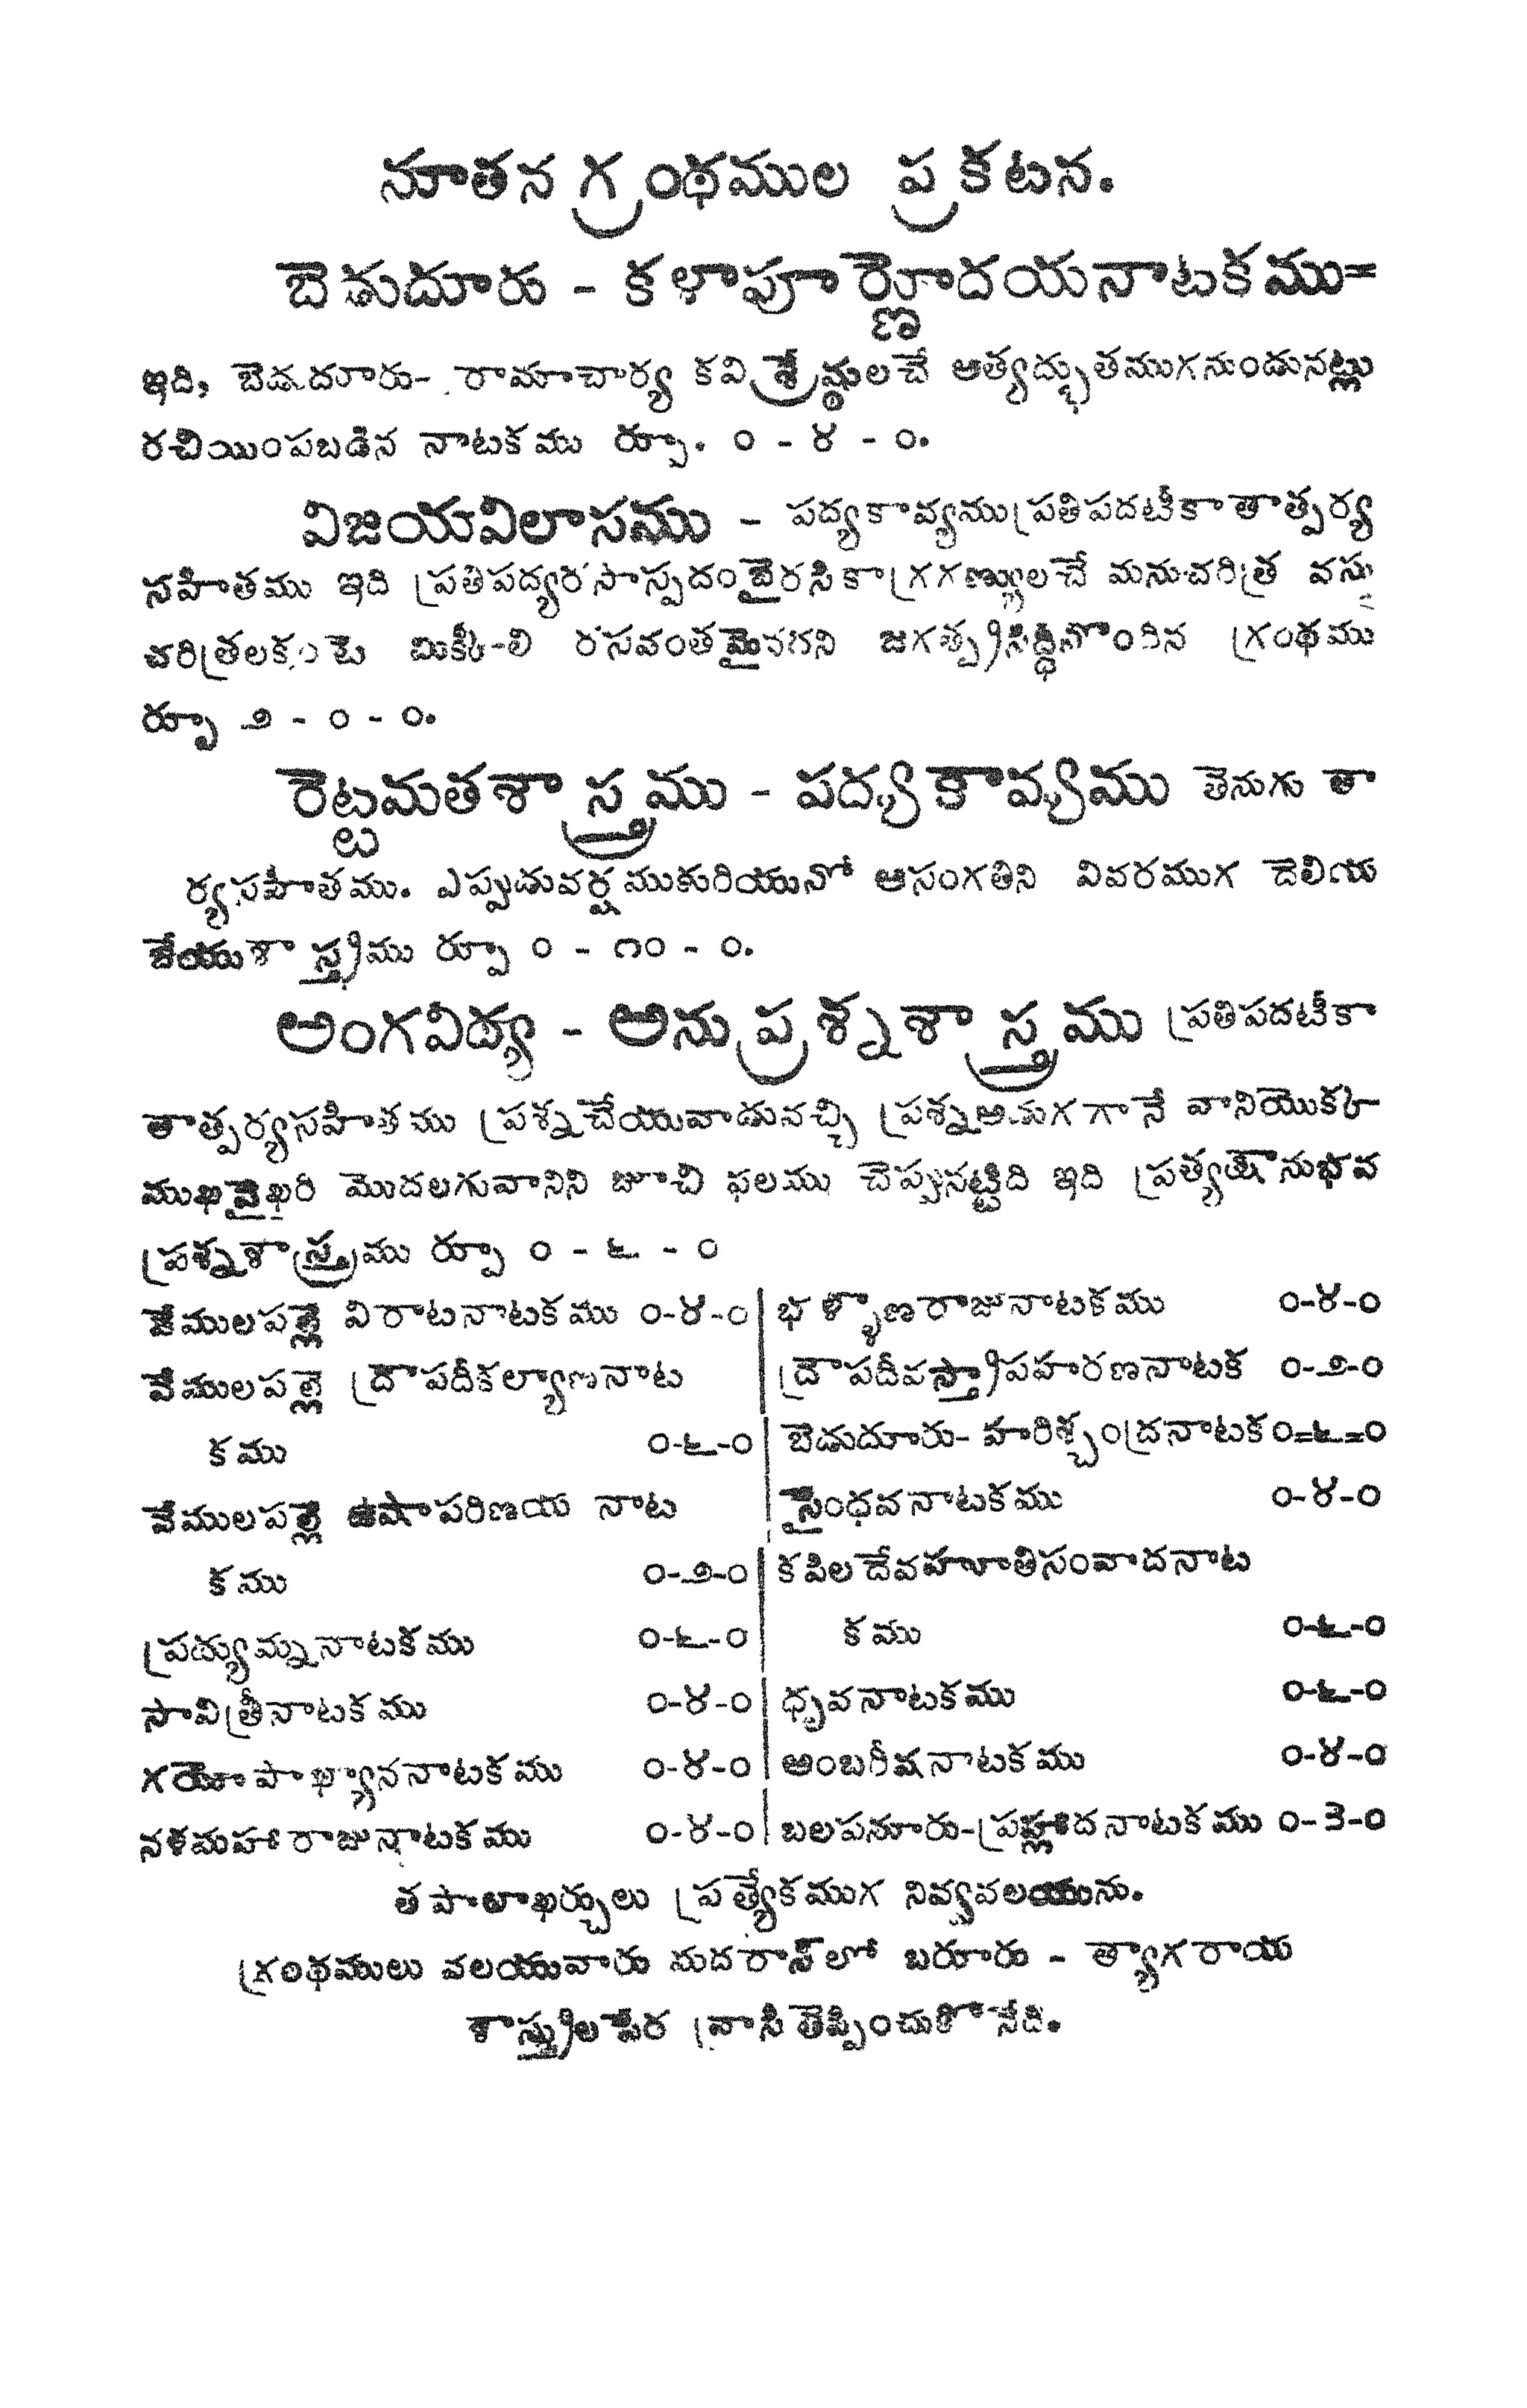 నూతన గ్రంథముల ప్రకటన.
బెడుదూరు - కళాపూర్ణోదయనాటకము=
ఇది, బెడుదూరు- రామాచార్య కవిశ్రేష్ఠులచే ఆత్యద్భుతముగనుండునట్లు
రచియింపబడిన నాటకము ర్పూ. ౦ - ౪ - ౦.
విజయవిలాసము - పద్యకావ్యముప్రతిపదటీకాతాత్పర్య
సహితము ఇది ప్రతిపద్యరసాస్పదంబైరసికాగ్రగణ్యులచే మనుచరిత్ర వసు
చరిత్రలకంటె మిక్కిలి రసవంతమైనదని జగత్ప్రసిద్ధినొందిన గ్రంథము
ర్పూ ౨ - ౦ - ౦.
రెట్టమతశాస్త్రము - పద్యకావ్యము తెనుగు తా
ర్యసహితము. ఎప్పుడువర్షముకురియునో ఆసంగతిని వివరముగ దెలియ
జేయుశాస్త్రము ర్పూ ౦ - ౧౦ - ౦.
అంగవిద్య - అనుప్రశ్నశాస్త్రము ప్రతిపదటీకా
తాత్పర్యసహితము ప్రశ్నచేయువాడువచ్చి ప్రశ్నఅడుగగానే వానియొక్క
ముఖవైఖరి మొదలగువానిని జూచి ఫలము చెప్పునట్టిది ఇది ప్రత్యక్షానుభవ
ప్రశ్నశాస్త్రము ర్పూ ౦ - ౬ - ౦
వేములపల్లె విరాటనాటకము ౦-౪-౦
వేములపల్లె ద్రౌపదీకల్యాణనాట
కము ౦-౬-౦
వేములపల్లె ఉషాపరిణయ నాట
కము ౦-౨-౦
ప్రద్యుమ్ననాటకము ౦-౬-౦
సావిత్రీనాటకము ౦-౪-౦
గయోపాఖ్యాననాటకము ౦-౪-౦
నళమహారాజునాటకము ౦-౪-౦
భళ్ళాణరాజునాటకము ౦-౪-౦
ద్రౌపదీవస్త్రాపహరణనాటక ౦-౨-౦
బెడుదూరు- హరిశ్చంద్రనాటక౦=౬=౦
సైంధవనాటకము ౦-౪-౦
కపిలదేవహూతిసంవాదనాట
కము ౦-౬-౦
ధృవనాటకము ౦-౬-౦
అంబరీషనాటకము ౦-౪-౦
బలపనూరు-ప్రహ్లాదనాటకము ౦-౩-౦
తపాలాఖర్చులు ప్రత్యేకముగ నివ్వవలయును.
గ్రంథములు వలయువారు మదరాస్‌లో బరూరు - త్యాగరాయ
శాస్త్రులపేర వ్రాసితెప్పించుకొనేది.